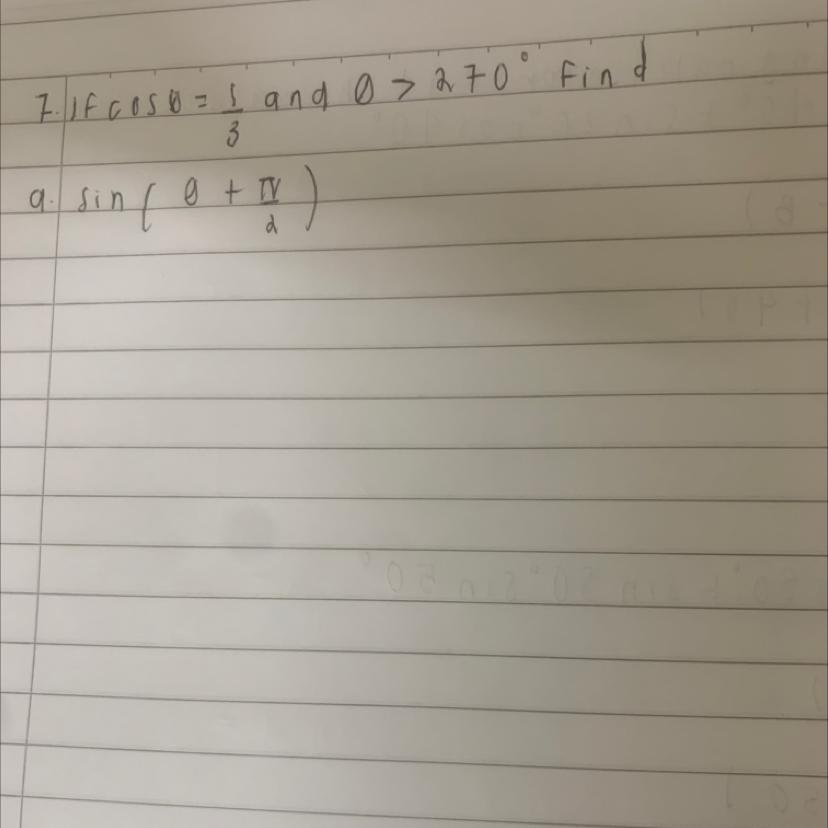 7. If cosθ = 1/3 and θ > 270° find
a. sin( θ + π/2 )